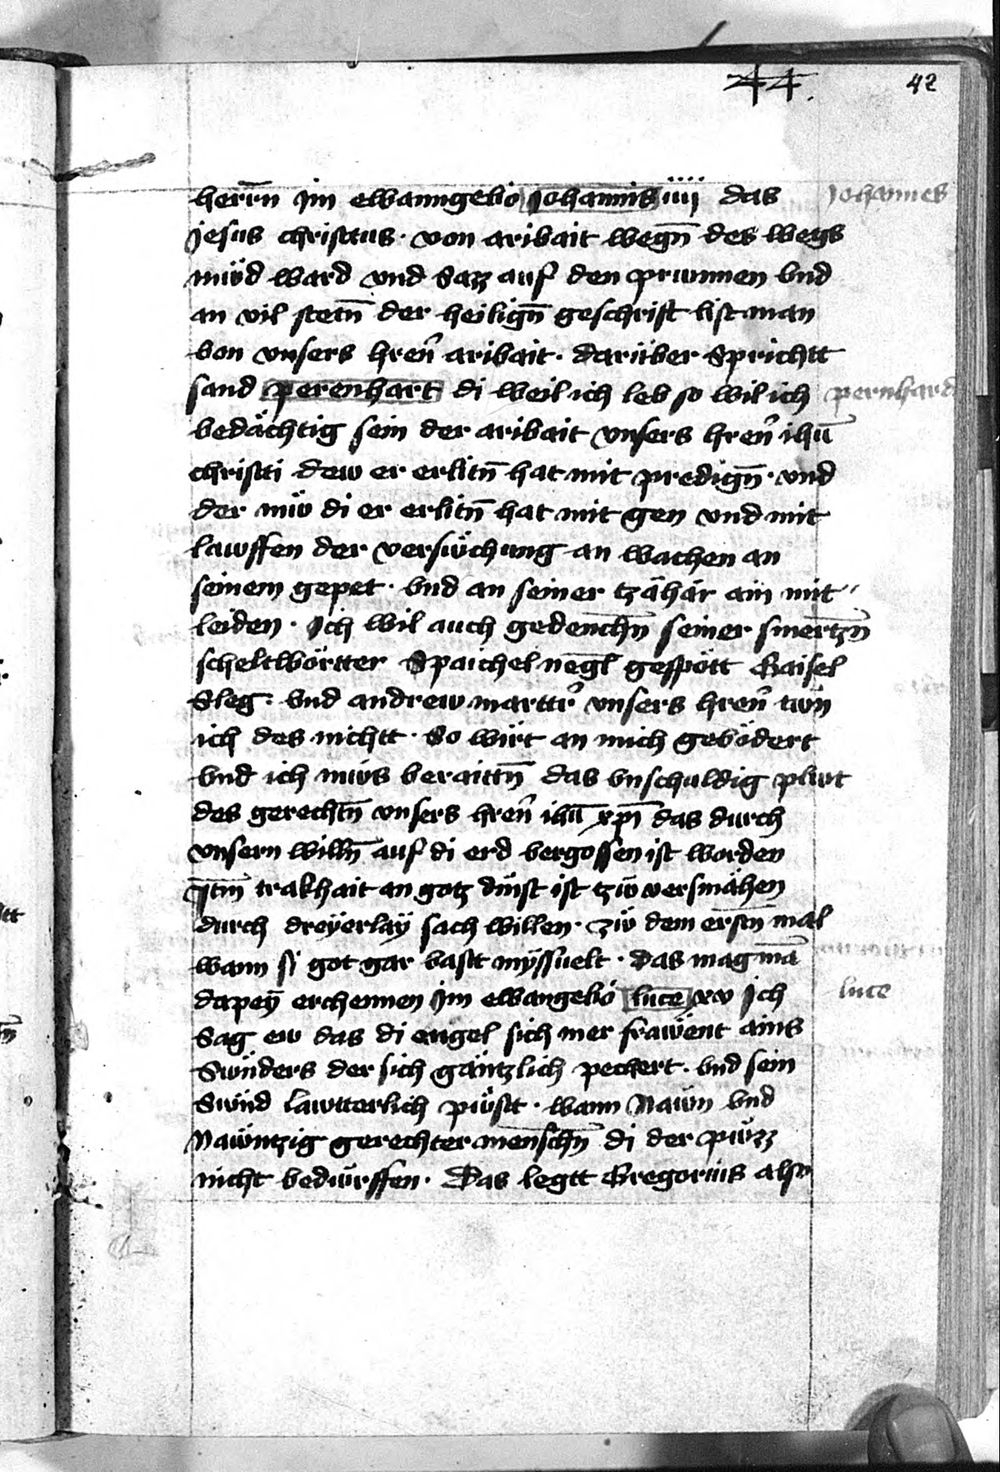 44. 42
herrn̄ Jm ewanngelio Johannis iiij das Johannes
Jesus christtus · von aribait wegn̄ des wegs
müed ward vnd Sazz auf den prunnen vnd
an vil stetn̄ der heilign̄ geschrift list man
von vnsers hren̄ aribait · darüber Sprichtt
sand perenhart di weil ich leb so wil ich pernhard
bedächtig sein der aribait vnsers hren̄ ihū
christti dew er erlitn̄ hat mit predign̄ · vnd
der mü̈ di er erlitn̄ hat mit gen vnd mit
lawffen der versuͤchung an wachen an
seinem gepet · vnd an seiner tzähär ain mit
leiden · Jch wil auch gedenchn̄ seiner smertzn̄
scheltwörtter Spaichel negl̄ gespött Gaisel
Sleg · vnd andrew marttr̄ vnsers hren̄ tün
ich des nichtt · So wirt an mich gevödert
vnd ich müs beraittn̄ das vnschuldig plüt
des gerechtn̄ vnsers hren̄ ihū xp̄i das durch
vnsern willn̄ auf di erd vergossen ist worden
Jtm̄ trakhait an gotz dinst ist tzü versmähen
durch dreÿerlaÿ sach willen · zü dem erstn̄ mal
wann si got gar vastt mÿssuelt · Das mag mā
dapeÿ erchennen Jm ewangelio luce xv Jch luce
Sag ew das di engel sich mer fräwent ains
Sünders der sich gäntzlich pechert · vnd sein
Sünd lawtterlich püstt · wann Nawn vnd
Nawntzig gerechter menschn̄ di der püzz
nicht bedürffen · Das legtt Gregorius also